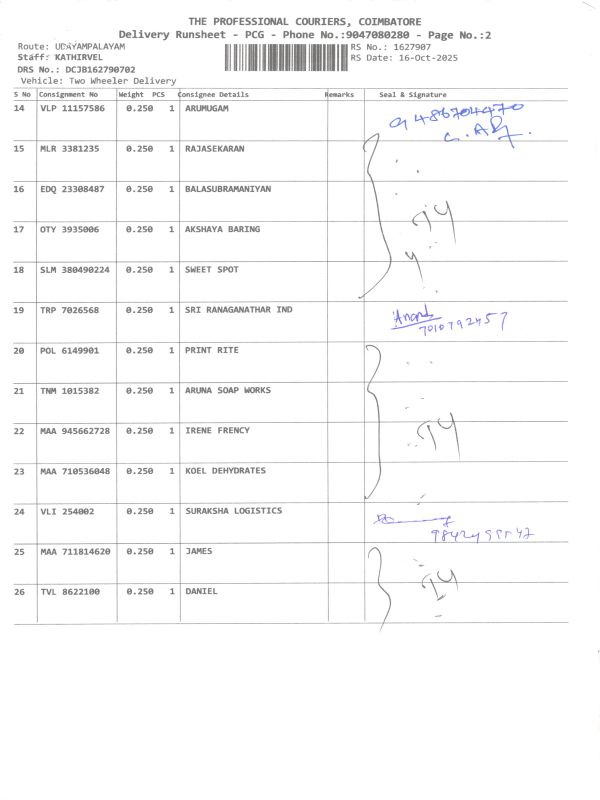 THE PROFESSIONAL COURIERS, COIMBATORE
Delivery Runsheet - PCG - Phone No.:9047080280 - Page No.:2
Route: UDAYAMPALAYAM RS No.: 1627907
Staff: KATHIRVEL RS Date: 16-Oct-2025
DRS No.: DCJB162790702
Vehicle: Two Wheeler Delivery
S No Consignment No Weight PCS Consignee Details Remarks Seal & Signature
14 VLP 11157586 0.250 1 ARUMUGAM
9486704470
15 MLR 3381235 0.250 1 RAJASEKARAN
16 EDQ 23308487 0.250 1 BALASUBRAMANIYAN
17 OTY 3935006 0.250 1 AKSHAYA BARING
18 SLM 380490224 0.250 1 SWEET SPOT
19 TRP 7026568 0.250 1 SRI RANAGANATHAR IND Anand
7010792457
20 POL 6149901 0.250 1 PRINT RITE
21 TNM 1015382 0.250 1 ARUNA SOAP WORKS
22 MAA 945662728 0.250 1 IRENE FRENCY
23 MAA 710536048 0.250 1 KOEL DEHYDRATES
24 VLI 254002 0.250 1 SURAKSHA LOGISTICS
25 MAA 711814620 0.250 1 JAMES
26 TVL 8622100 0.250 1 DANIEL